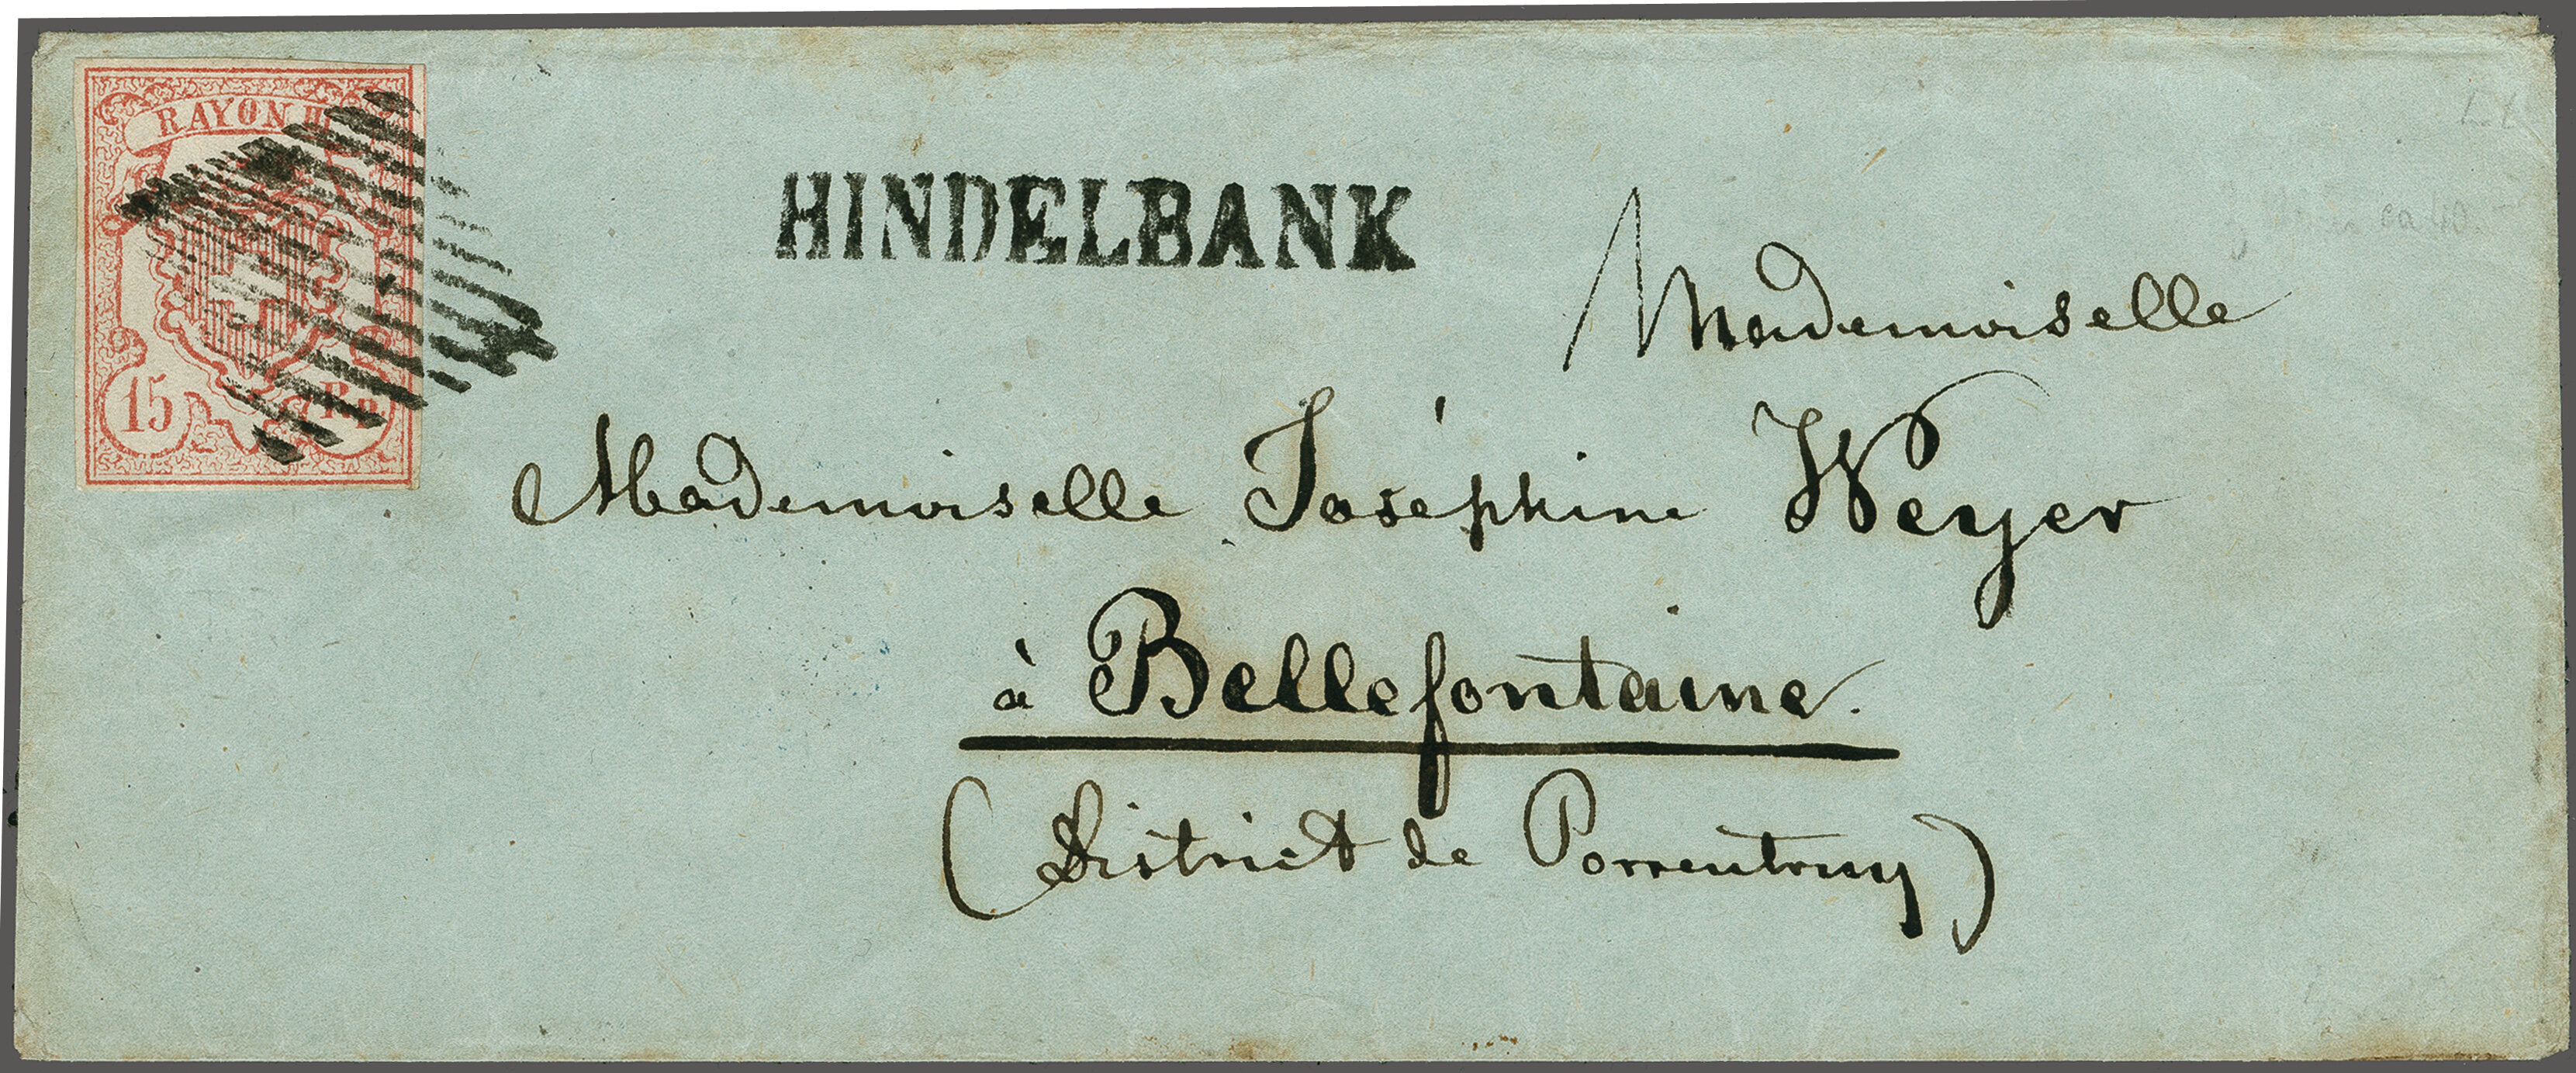 RAYON III
HINDELBANK
Mademoiselle
Mademoiselle Joséphine Weyer
à Bellefontaine.
(District de Porrentruy)
15 Rp